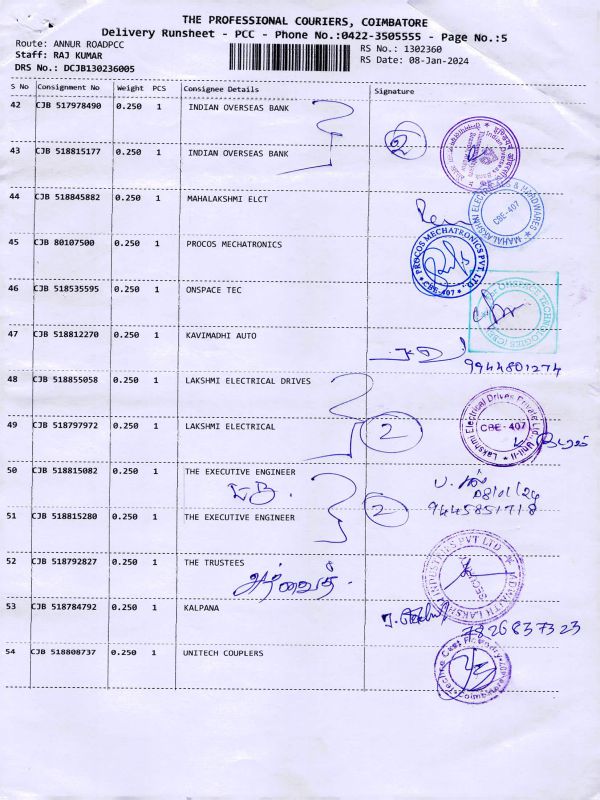 THE PROFESSIONAL COURIERS, COIMBATORE
Delivery Runsheet - PCC - Phone No.:0422-3505555 - Page No.:5
Route: ANNUR ROADPCC
Staff: RAJ KUMAR
DRS No.: DCJB130236005
RS No.: 1302360
RS Date: 08-Jan-2024
S No Consignment No Weight PCS Consignee Details Signature
42 CJB 517978490 0.250 1 INDIAN OVERSEAS BANK
2
43 CJB 518815177 0.250 1 INDIAN OVERSEAS BANK
44 CJB 518845882 0.250 1 MAHALAKSHMI ELCT
MAHALAKSHMI ELECTRICALS & HARDWARES
CBE-407
45 CJB 80107500 0.250 1 PROCOS MECHATRONICS
PROCOS MECHATRONICS PVT. LTD.
CBE-407
46 CJB 518535595 0.250 1 ONSPACE TEC
47 CJB 518812270 0.250 1 KAVIMADHI AUTO
9944801274
48 CJB 518855058 0.250 1 LAKSHMI ELECTRICAL DRIVES
Lakshmi Electrical Drives Private Ltd., Unit-II
CBE-407
49 CJB 518797972 0.250 1 LAKSHMI ELECTRICAL
2
50 CJB 518815082 0.250 1 THE EXECUTIVE ENGINEER
EB.
08/01/24
9445851718
2
51 CJB 518815280 0.250 1 THE EXECUTIVE ENGINEER
52 CJB 518792827 0.250 1 THE TRUSTEES
53 CJB 518784792 0.250 1 KALPANA
7826837323
54 CJB 518808737 0.250 1 UNITECH COUPLERS